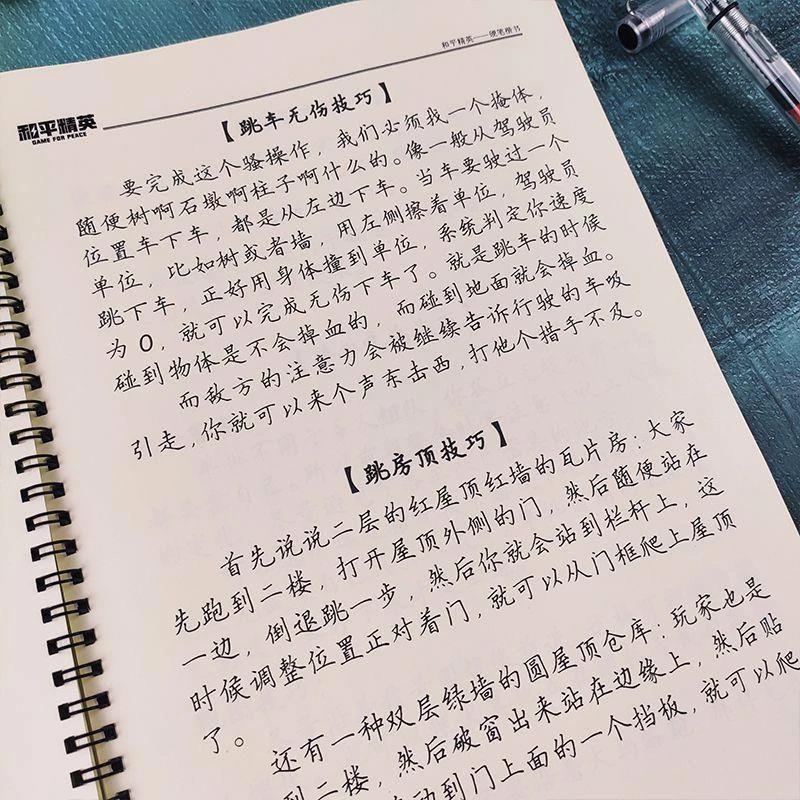 和平精英——硬笔楷书
和平精英
GAME FOR PEACE
【跳车无伤技巧】
要完成这个骚操作，我们必须找一个掩体，
随便树啊石墩啊柱子啊什么的。像一般从驾驶员
位置车下车，都是从左边下车。当车要驶过一个
单位，比如树或者墙，用左侧擦着单位，驾驶员
跳下车，正好用身体撞到单位，系统判定你速度
为0，就可以完成无伤下车了。就是跳车的时候
碰到物体是不会掉血的，而碰到地面就会掉血。
而敌方的注意力会被继续告诉行驶的车吸
引走，你就可以来个声东击西，打他个措手不及。
【跳房顶技巧】
首先说说二层的红屋顶红墙的瓦片房：大家
先跑到二楼，打开屋顶外侧的门，然后随便站在
一边，倒退跳一步，然后你就会站到栏杆上，这
时候调整位置正对着门，就可以从门框爬上屋顶
了。
还有一种双层绿墙的圆屋顶仓库：玩家也是
到二楼，然后破窗出来站在边缘上，然后贴
动到门上面的一个挡板，就可以爬